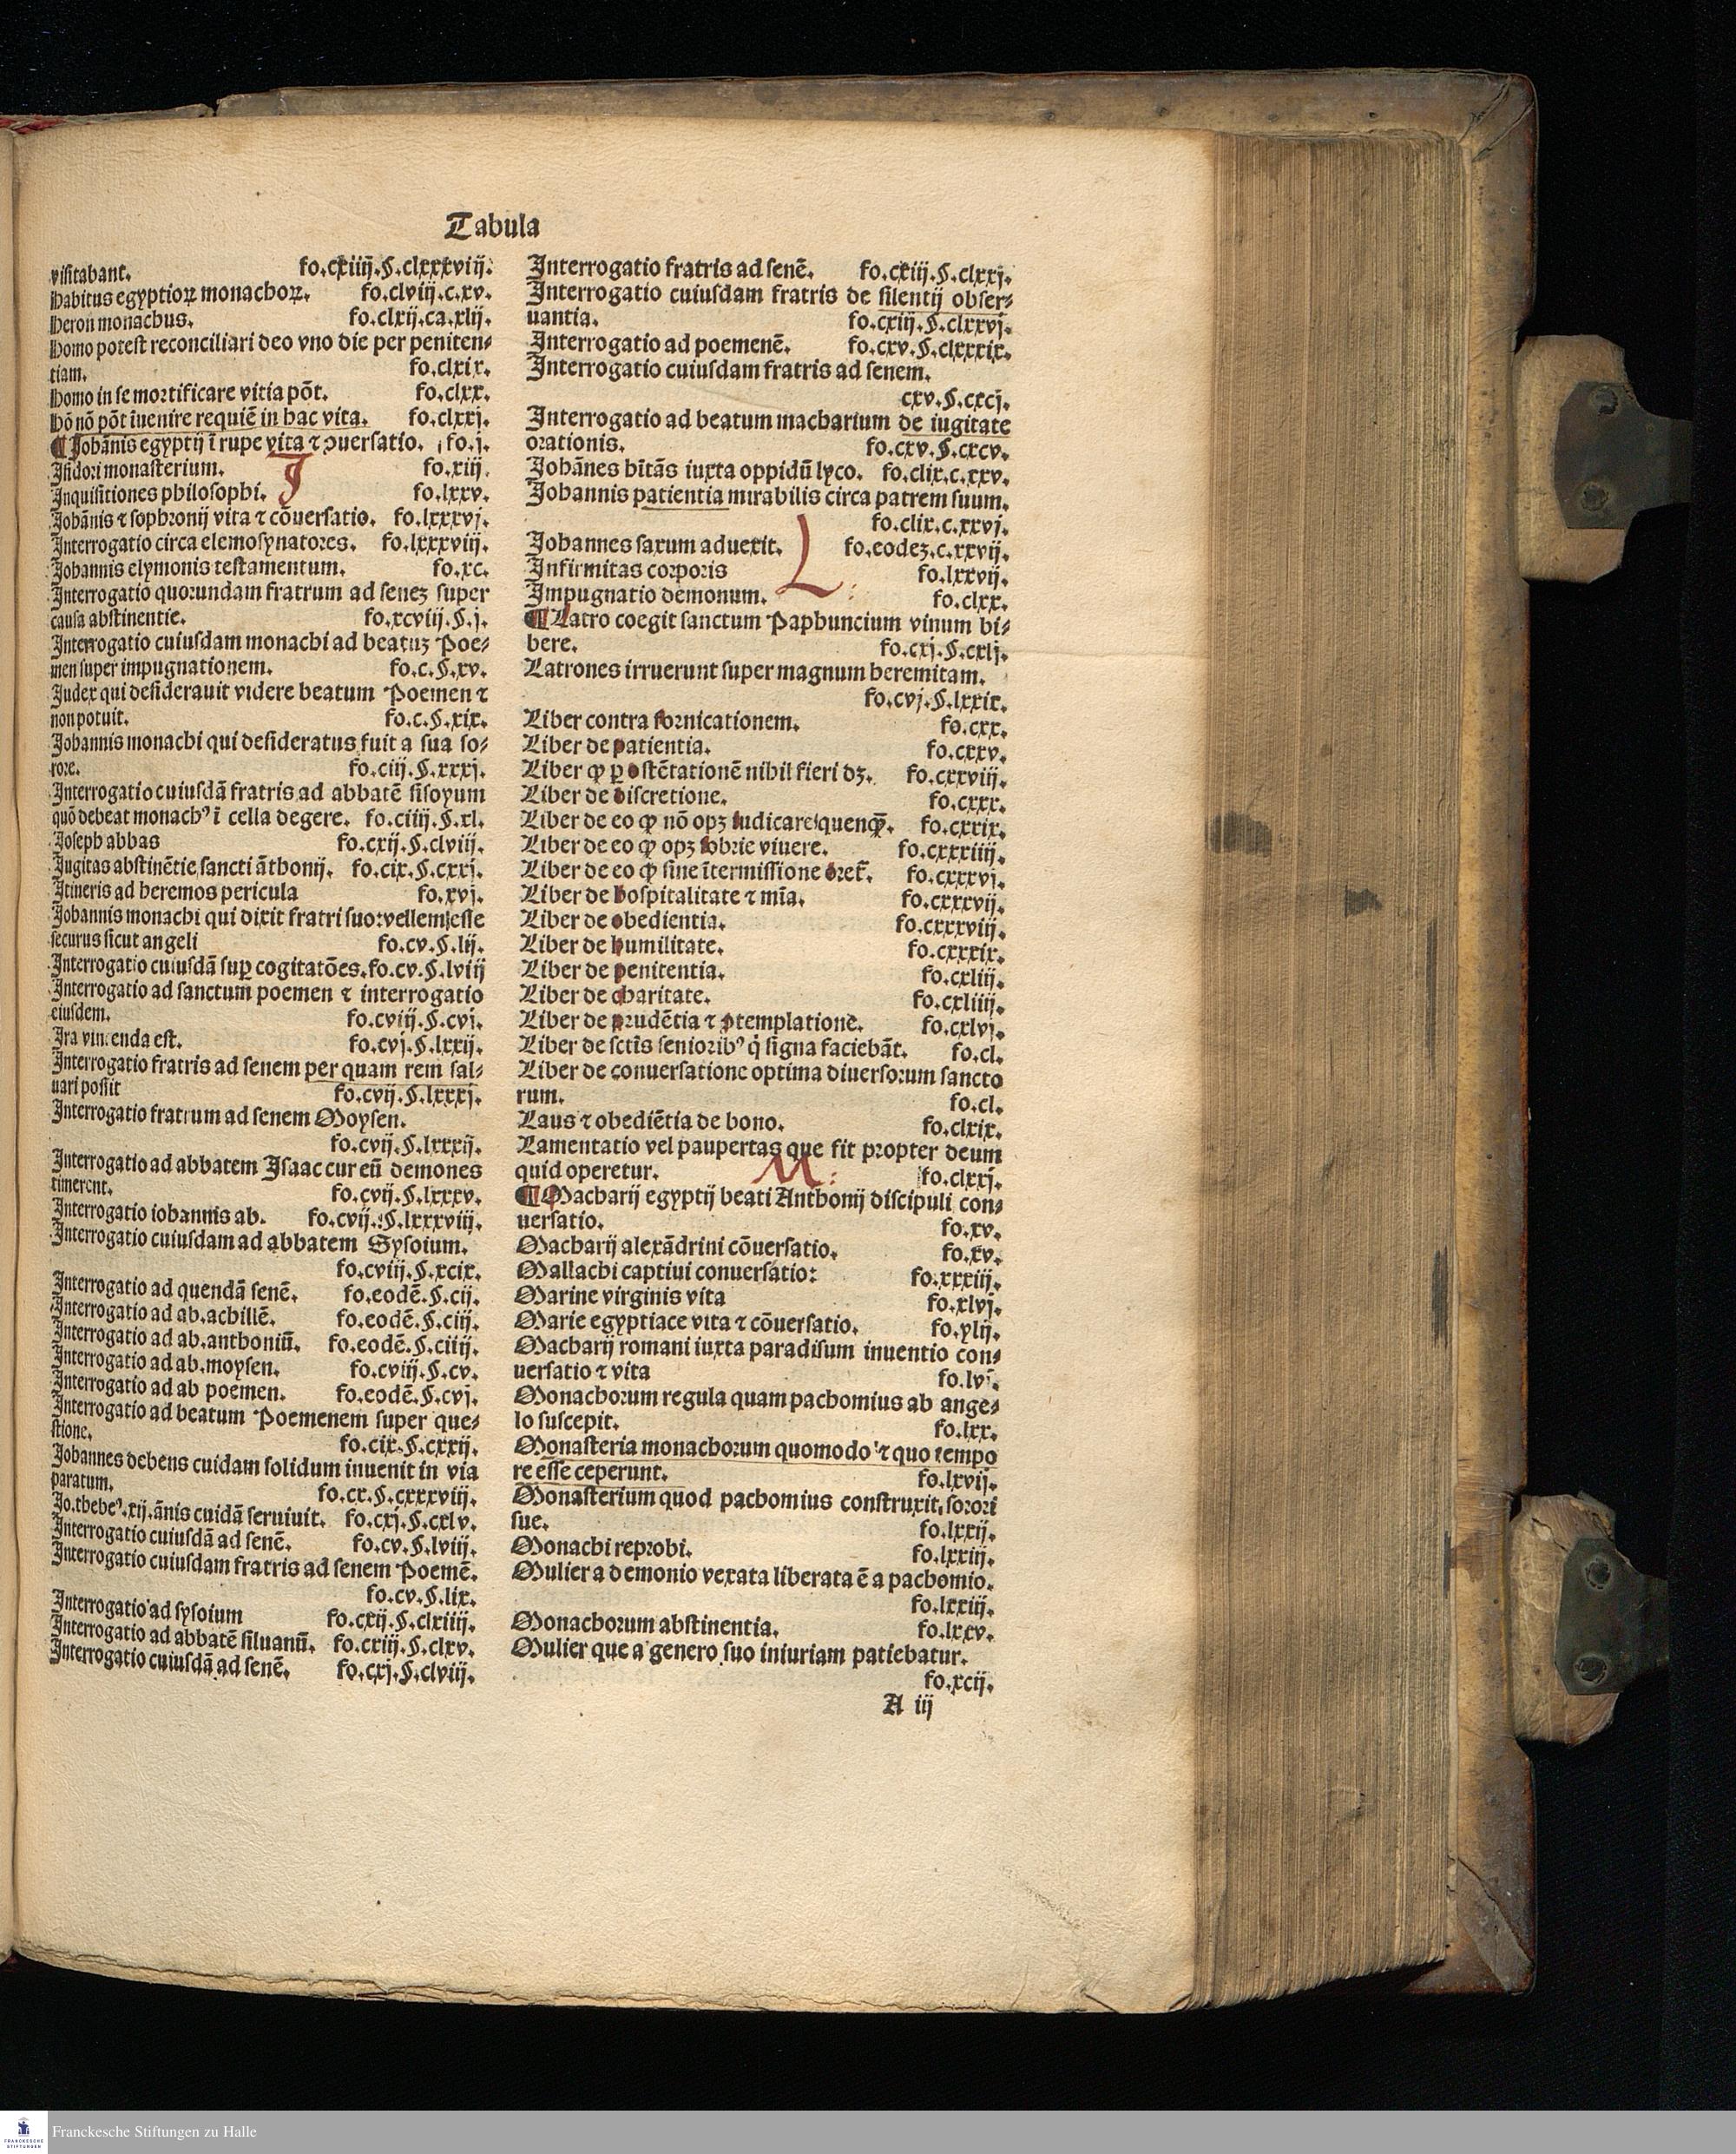 Tabula
visitabant. fo.cxiiij.§.clxxxviij.
Habitus egyptioꝝ monachoꝝ. fo.clviij.c.xv.
Heron monachus. fo.clxij.ca.xlij.
Homo potest reconciliari deo vno die per peniten⸗
tiam. fo.clxix.
Homo in se mortificare vitia põt. fo.clxx.
Hõ nõ põt īuenire requiē in hac vita. fo.clxxj.
¶ Johānis egyptij ī rupe vita ⁊ ꝯuersatio. fo.j.
J
Isidori monasterium. fo.xiij.
Inquisitiones philosophi. fo.lxxv.
Johānis ⁊ sophronij vita ⁊ cōuersatio. fo.lxxxvj.
Interrogatio circa elemosynatores. fo.lxxxviij.
Johannis elymonis testamentum. fo.xc.
Interrogatio quorundam fratrum ad seneꝫ super
causa abstinentie. fo.xcviij.§.j.
Interrogatio cuiusdam monachi ad beatuꝫ Poe⸗
men super impugnationem. fo.c.§.xv.
Judex qui desiderauit videre beatum Poemen ⁊
non potuit. fo.c.§.xix.
Johannis monachi qui desideratus fuit a sua so⸗
rore. fo.ciij.§.xxxj.
Interrogatio cuiusdā fratris ad abbatē sisoyum
quō debeat monachꝰ ī cella degere. fo.ciiij.§.xl.
Joseph abbas fo.cxij.§.clviij.
Jugitas abstinētie sancti āthonij. fo.cix.§.cxxj.
Itineris ad heremos pericula fo.xvj.
Johannis monachi qui dixit fratri suo:vellem esse
securus sicut angeli fo.cv.§.lij.
Interrogatio cuiusdā suꝑ cogitatōes.fo.cv.§.lviij
Interrogatio ad sanctum poemen ⁊ interrogatio
eiusdem. fo.cviij.§.cvj.
Ira vincenda est. fo.cvj.§.lxxij.
Interrogatio fratris ad senem per quam rem sal⸗
uari possit fo.cvij.§.lxxxj.
Interrogatio fratrum ad senem Moysen.
fo.cvij.§.lxxxij.
Interrogatio ad abbatem Isaac cur eū demones
timerent. fo.cvij.§.lxxxv.
Interrogatio iohannis ab. fo.cvij.§.lxxxviij.
Interrogatio cuiusdam ad abbatem Sysoium.
fo.cviij.§.xcix.
Interrogatio ad quendā senē. fo.eodē.§.cij.
Interrogatio ad ab.achillē. fo.eodē.§.ciij.
Interrogatio ad ab.anthoniū. fo.eodē.§.ciiij.
Interrogatio ad ab.moysen. fo.cviij.§.cv.
Interrogatio ad ab poemen. fo.eodē.§.cvj.
Interrogatio ad beatum Poemenem super que⸗
stione. fo.cix.§.cxxij.
Johannes debens cuidam solidum inuenit in via
paratum. fo.cx.§.cxxxviij.
Jo.thebeꝰ.xij.ānis cuidā seruiuit. fo.cxj.§.cxlv.
Interrogatio cuiusdā ad senē. fo.cv.§.lviij.
Interrogatio cuiusdam fratris ad senem Poemē.
fo.cv.§.lix.
Interrogatio ad sysoium fo.cxij.§.clxiiij.
Interrogatio ad abbatē siluanū. fo.cxiij.§.clxv.
Interrogatio cuiusdā ad senē. fo.cxj.§.clviij.
Interrogatio fratris ad senē. fo.cxiij.§.clxxj.
Interrogatio cuiusdam fratris de silentij obser⸗
uantia. fo.cxiij.§.clxxvj.
Interrogatio ad poemenē. fo.cxv.§.clxxxix.
Interrogatio cuiusdam fratris ad senem.
cxv.§.cxcj.
Interrogatio ad beatum macharium de iugitate
orationis. fo.cxv.§.cxcv.
Johānes bītās iuxta oppidū lyco. fo.clix.c.xxv.
Johannis patientia mirabilis circa patrem suum.
fo.clix.c.xxvj.
Johannes saxum aduexit. fo.eodeꝫ.c.xxvij.
Infirmitas corporis fo.lxxvij.
L:
Impugnatio demonum. fo.clxx.
¶ Latro coegit sanctum Paphuncium vinum bi⸗
bere. fo.cxj.§.cxlj.
Latrones irruerunt super magnum heremitam.
fo.cvj.§.lxxix.
Liber contra fornicationem. fo.cxx.
Liber de patientia. fo.cxxv.
Liber ꝙ ꝑ ostētationē nihil fieri dꝫ. fo.cxxviij.
Liber de discretione. fo.cxxx.
Liber de eo ꝙ nō opꝫ iudicare quenꝙ̄. fo.cxxix.
Liber de eo ꝙ opꝫ sobrie viuere. fo.cxxxiiij.
Liber de eo ꝙ sine ītermissione oret̄. fo.cxxxvj.
Liber de hospitalitate ⁊ mīa. fo.cxxxvij.
Liber de obedientia. fo.cxxxviij.
Liber de humilitate. fo.cxxxix.
Liber de penitentia. fo.cxliij.
Liber de charitate. fo.cxliiij.
Liber de prudētia ⁊ ꝯtemplatione. fo.cxlvj.
Liber de sctīs senioribꝰ q̇ signa faciebāt. fo.cl.
Liber de conuersatione optima diuersorum sancto
rum. fo.cl.
Laus ⁊ obediētia de bono. fo.clxix.
Lamentatio vel paupertas que fit propter deum
quid operetur. fo.clxxj.
M:
¶ Macharij egyptij beati Anthonij discipuli con⸗
uersatio. fo.xv.
Macharij alexādrini cōuersatio. fo.xv.
Mallachi captiui conuersatio: fo.xxxiij.
Marine virginis vita fo.xlvj.
Marie egyptiace vita ⁊ cōuersatio. fo.ylij.
Macharij romani iuxta paradisum inuentio con⸗
uersatio ⁊ vita fo.lvj.
Monachorum regula quam pachomius ab ange⸗
lo suscepit. fo.lxx.
Monasteria monachorum quomodo ⁊ quo tempo
re esse ceperunt. fo.lxvij.
Monasterium quod pachomius construxit sorori
sue. fo.lxxij.
Monachi reprobi. fo.lxxiij.
Mulier a demonio vexata liberata ē a pachomio.
fo.lxxiij.
Monachorum abstinentia. fo.lxxv.
Mulier que a genero suo iniuriam patiebatur.
fo.xcij.
A iij
FRANCKESCHE
STIFTUNGEN
Franckesche Stiftungen zu Halle